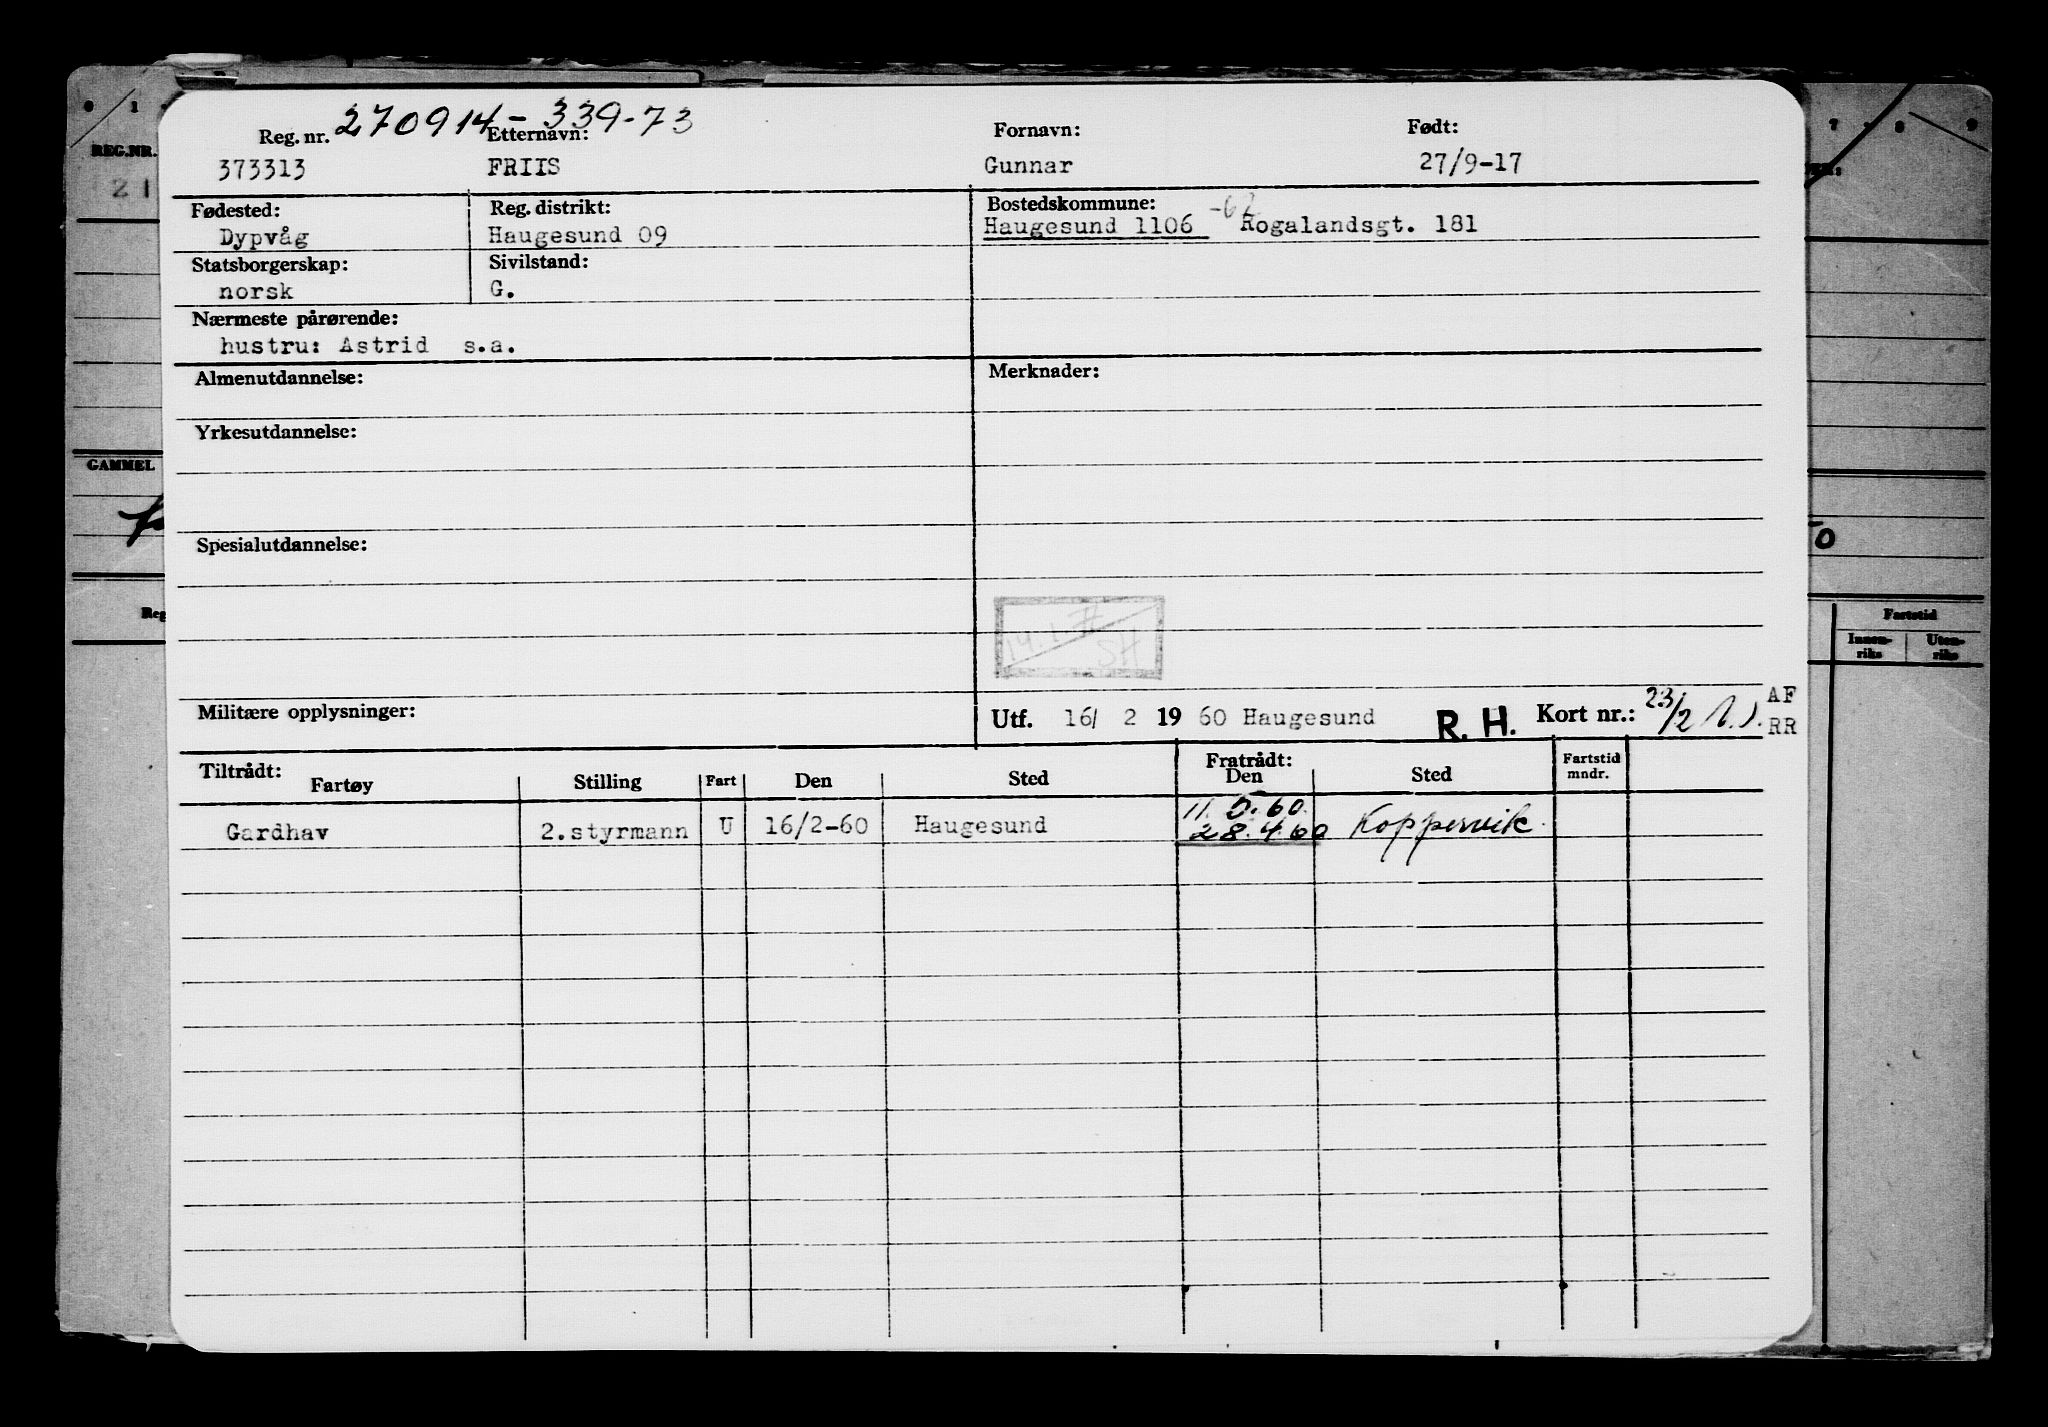 270914-339-73
Reg. nr. Etternavn: Fornavn: Født:
373313 FRIIS Gunnar 27/9-17
Fødested: Reg. distrikt: Bostedskommune: -62
Dypvåg Haugesund 09 Haugesund 1106 Rogalandsgt. 181
Statsborgerskap: Sivilstand:
norsk G.
Nærmeste pårørende:
hustru: Astrid s.a.
Almenutdannelse: Merknader:
Yrkesutdannelse:
Spesialutdannelse:
SH
Militære opplysninger: Utf. 16/ 2 19 60 Haugesund R. H. Kort nr.: 23/2 AF
RR
Tiltrådt: Fratrådt: Fartstid
Fartøy Stilling Fart Den Sted Den Sted mndr.
Gardhav 2.styrmann U 16/2-60 Haugesund 28.4.60 Koppervik
0 1 7 8 9
REG.NR.
21
GAMMEL
Reg
0
Fartstid
Innen-
riks
Uten-
riks